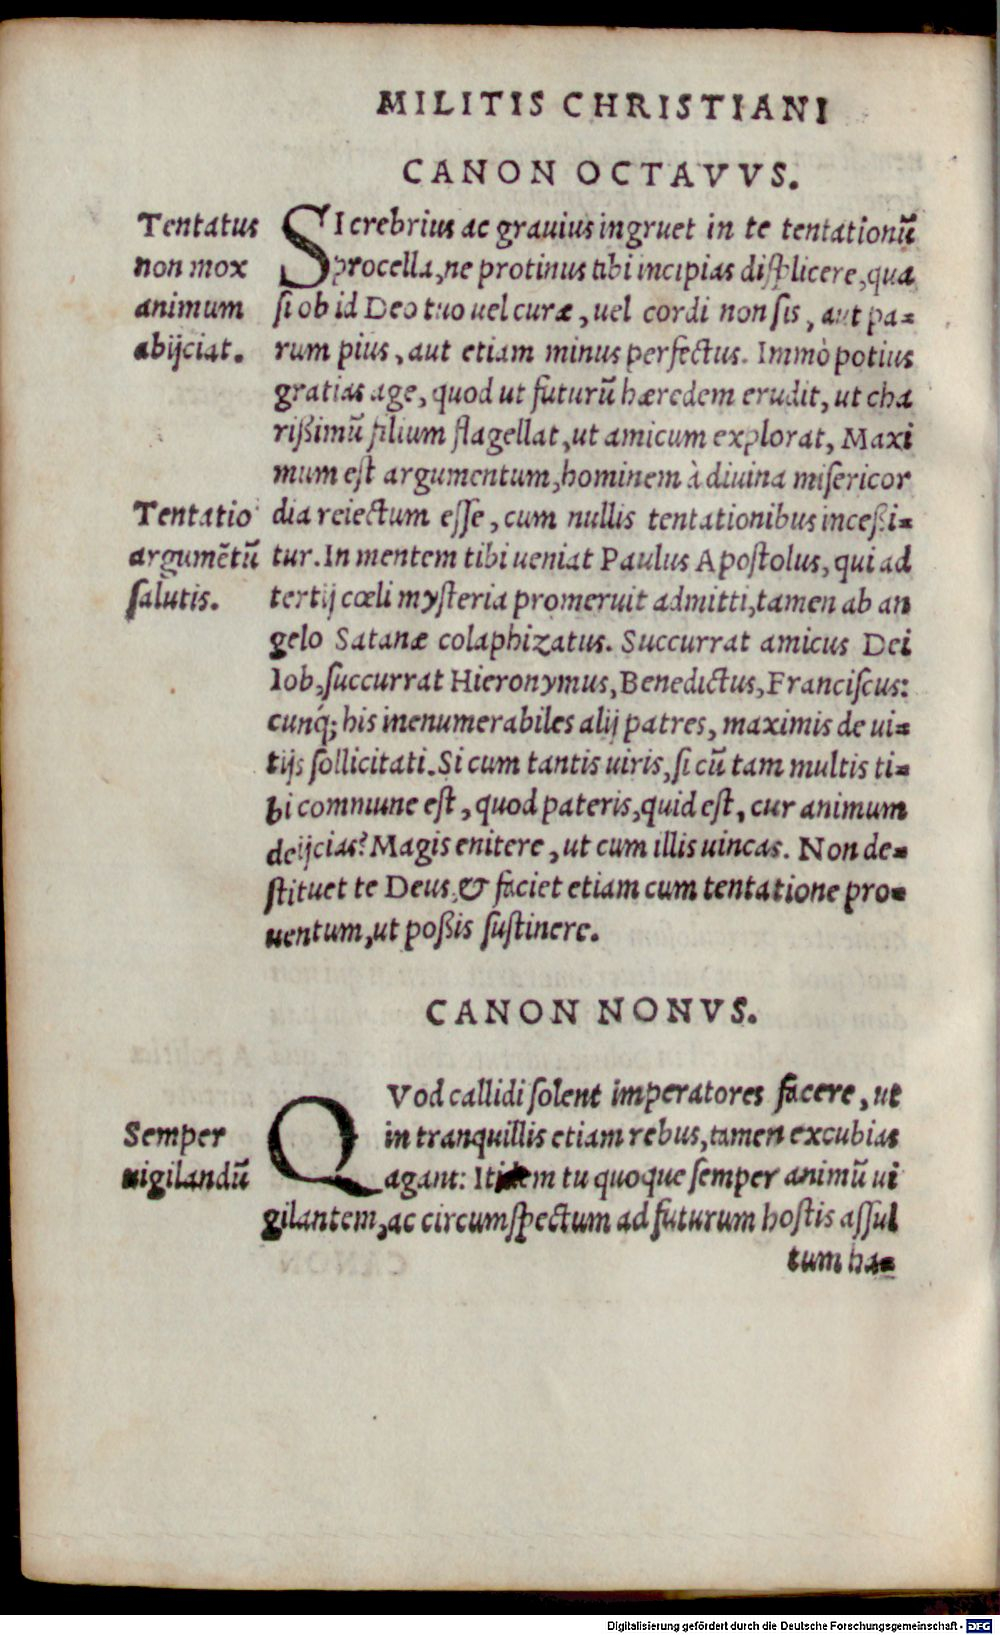 MILITIS CHRISTIANI
CANON OCTAVVS.
Tentatus
non mox
animum
abijciat.
SI crebrius ac grauius ingruet in te tentationū
procella, ne protinus tibi incipias displicere, qua
si ob id Deo tuo uel curæ, uel cordi non sis, aut pa-
rum pius, aut etiam minus perfectus. Immò potius
gratias age, quod ut futurū hæredem erudit, ut cha
rißimū filium flagellat, ut amicum explorat, Maxi
mum est argumentum, hominem à diuina misericor
Tentatio
argumētū
salutis.
dia reiectum esse, cum nullis tentationibus inceßi-
tur. In mentem tibi ueniat Paulus Apostolus, qui ad
tertij cœli mysteria promeruit admitti, tamen ab an
gelo Satanæ colaphizatus. Succurrat amicus Dei
Iob, succurrat Hieronymus, Benedictus, Franciscus:
cunq́; his inenumerabiles alij patres, maximis de ui-
tijs sollicitati. Si cum tantis uiris, si cū tam multis ti-
bi commune est, quod pateris, quid est, cur animum
deijcias? Magis enitere, ut cum illis uincas. Non de-
stituet te Deus, & faciet etiam cum tentatione pro-
uentum, ut poßis sustinere.
CANON NONVS.
Semper
uigilandū
QVod callidi solent imperatores facere, ut
in tranquillis etiam rebus, tamen excubias
agant: Itidem tu quoque semper animū ui
gilantem, ac circumspectum ad futurum hostis assul
tum ha-
Digitalisierung gefördert durch die Deutsche Forschungsgemeinschaft - DFG